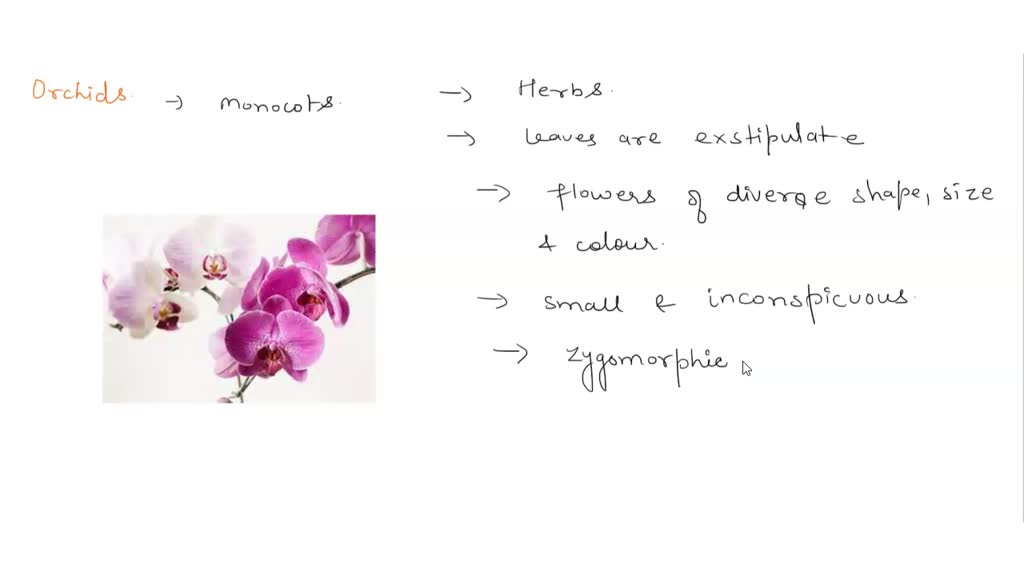 Orchids. → monocots.
→ Herbs.
→ leaves are exstipulate
→ flowers of diverse shape, size
& colour.
→ small & inconspicuous.
→ zygomorphic